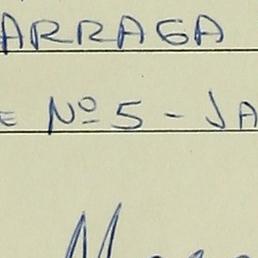 ARRAGA
E Nº 5 - JA